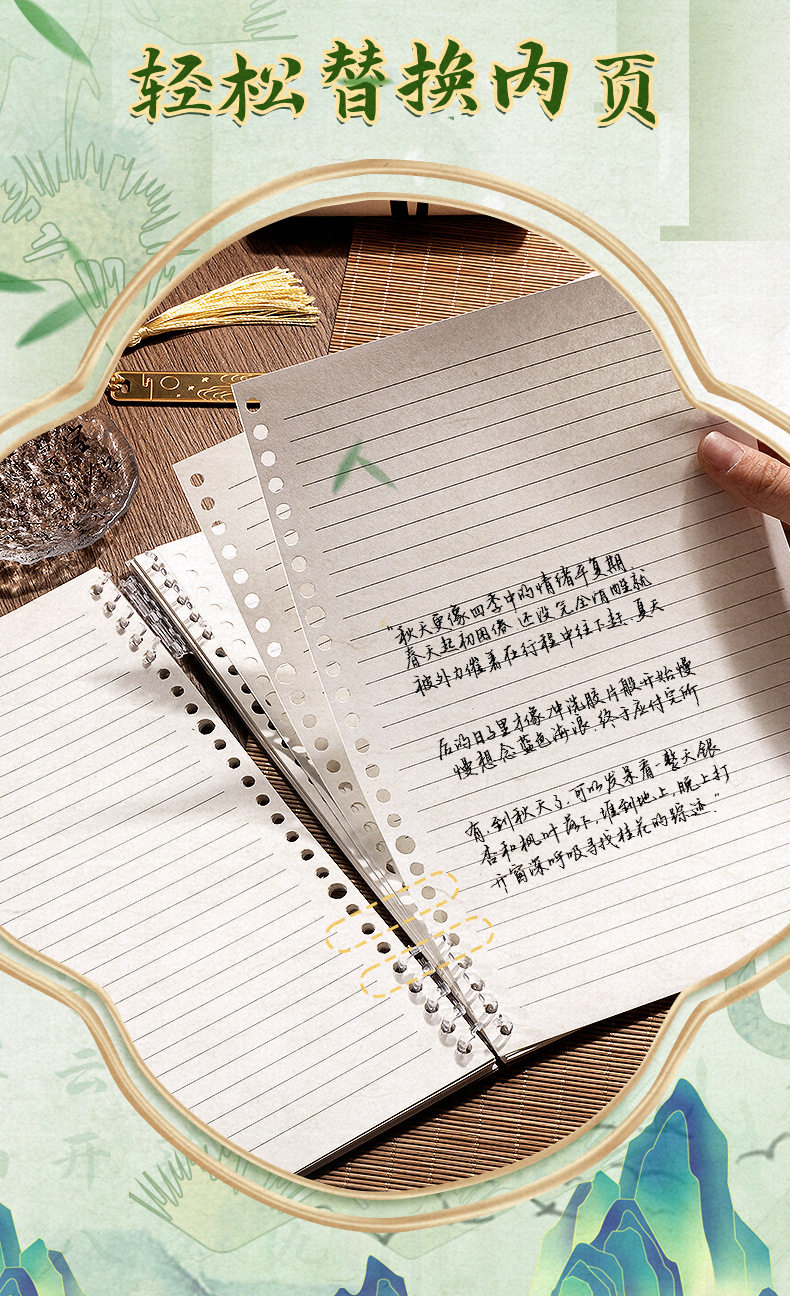 轻松替换内页
"秋天更像四季中的情绪平复期,
春天起初困倦 还没完全清醒就
被外力催着在行程中往下赶,夏天
后的日子里才像冲洗胶片般开始慢
慢想念蓝色海浪.终于应付完所
有,到秋天了,可以发呆看一整天银
杏和枫叶落下,堆到地上,晚上打
开窗深呼吸寻找桂花的踪迹."
云
开